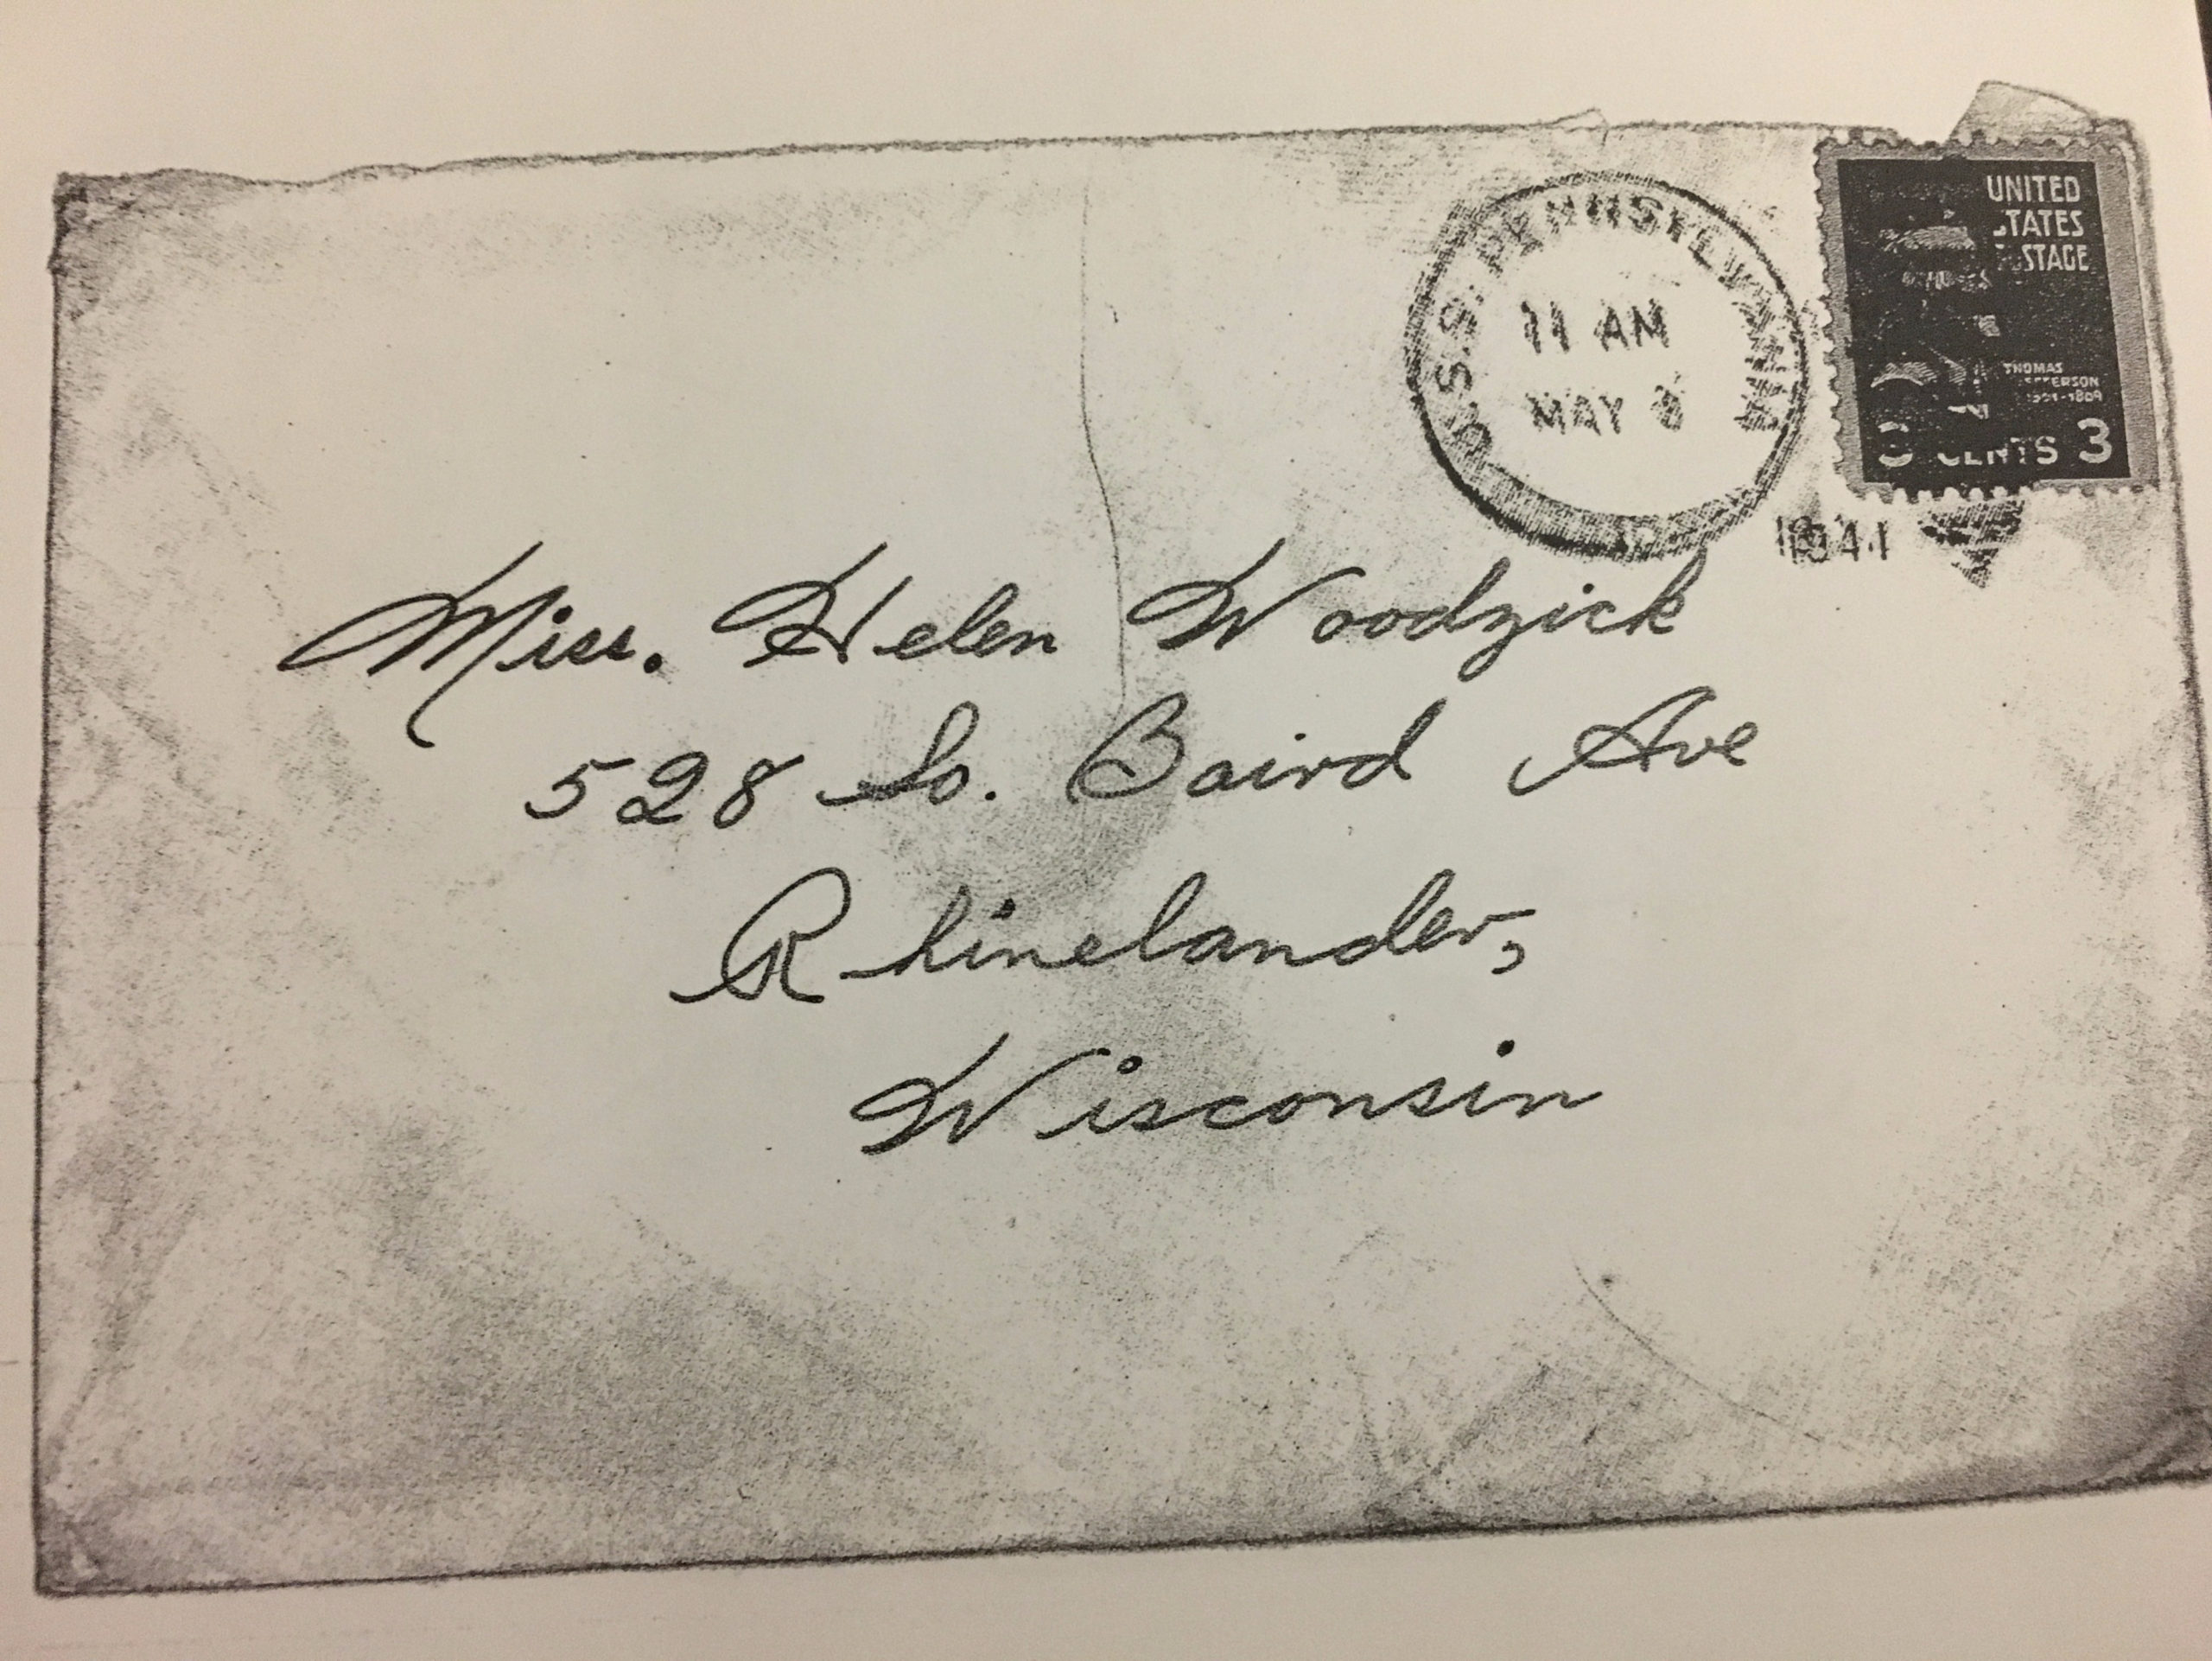 U.S.S. PENNSYLVANIA
11 AM
MAY
1941
UNITED
STATES
POSTAGE
THOMAS
JEFFERSON
1801-1809
3 CENTS 3
Miss. Helen Woodzick
528 So. Baird Ave
Rhinelander,
Wisconsin